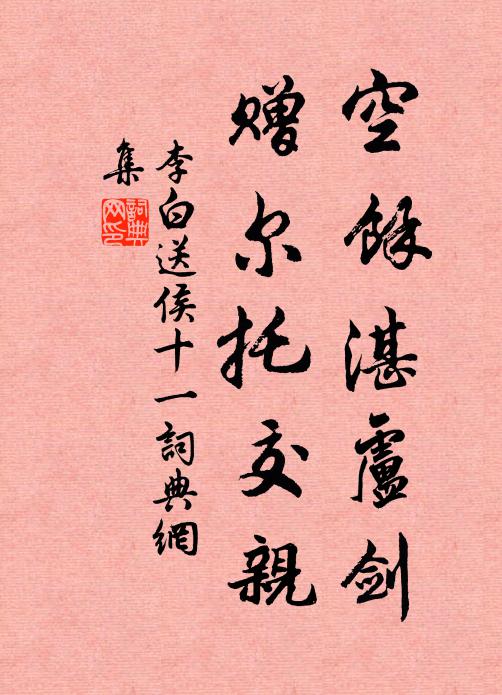 空餘湛盧劍
贈尔托交親
李白送侯十一詞典網
集
詞典
网印